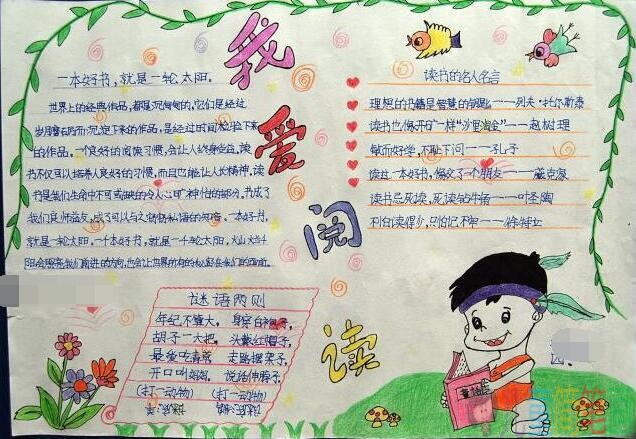 我爱阅读
一本好书，就是一轮太阳。
世界上的经典作品，都是沉甸甸的，它们是经过
岁月磨砺而沉淀下来的作品，是经过时间检验下来
的作品。一个良好的阅读习惯，会让人终身受益，读
书不仅可以培养人良好的习惯，而且也能让人长精神，读
书是我们生命中不可或缺的令人心旷神怡的部分。书成了
我们良师益友，成了可以与之窃窃私语的知音。一本好书，
就是一轮太阳，一千本好书，就是一千轮太阳，灿灿
阳会照亮我们前进的方向，也会让世界所有的
读书的名人名言
理想的书籍是智慧的钥匙——列夫·托尔斯泰
读书也像开矿一样“沙里淘金”——赵树理
敏而好学，不耻下问——孔子
读过一本好书，像交了一个朋友——臧克家
读书忌死读，死读钻牛角——叶圣陶
不怕读得少，只怕记不牢——徐特立
谜语两则
年纪不算大， 身穿白袍子，
胡子一大把， 头戴红帽子，
最爱吃青草， 走路摆架子，
开口叫妈妈。 说话伸脖子。
（打一动物） （打一动物）